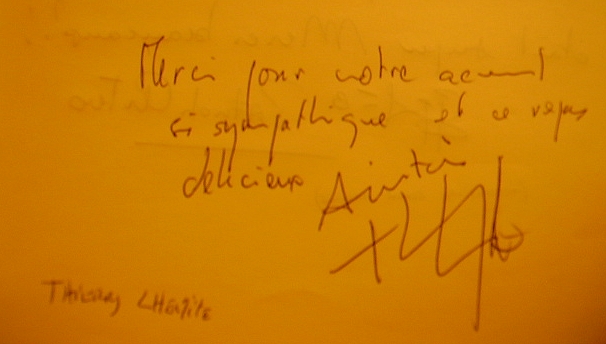 Merci pour votre accueil
si sympathique et ce repas
délicieux Amitiés
THIERRY LHERMITE